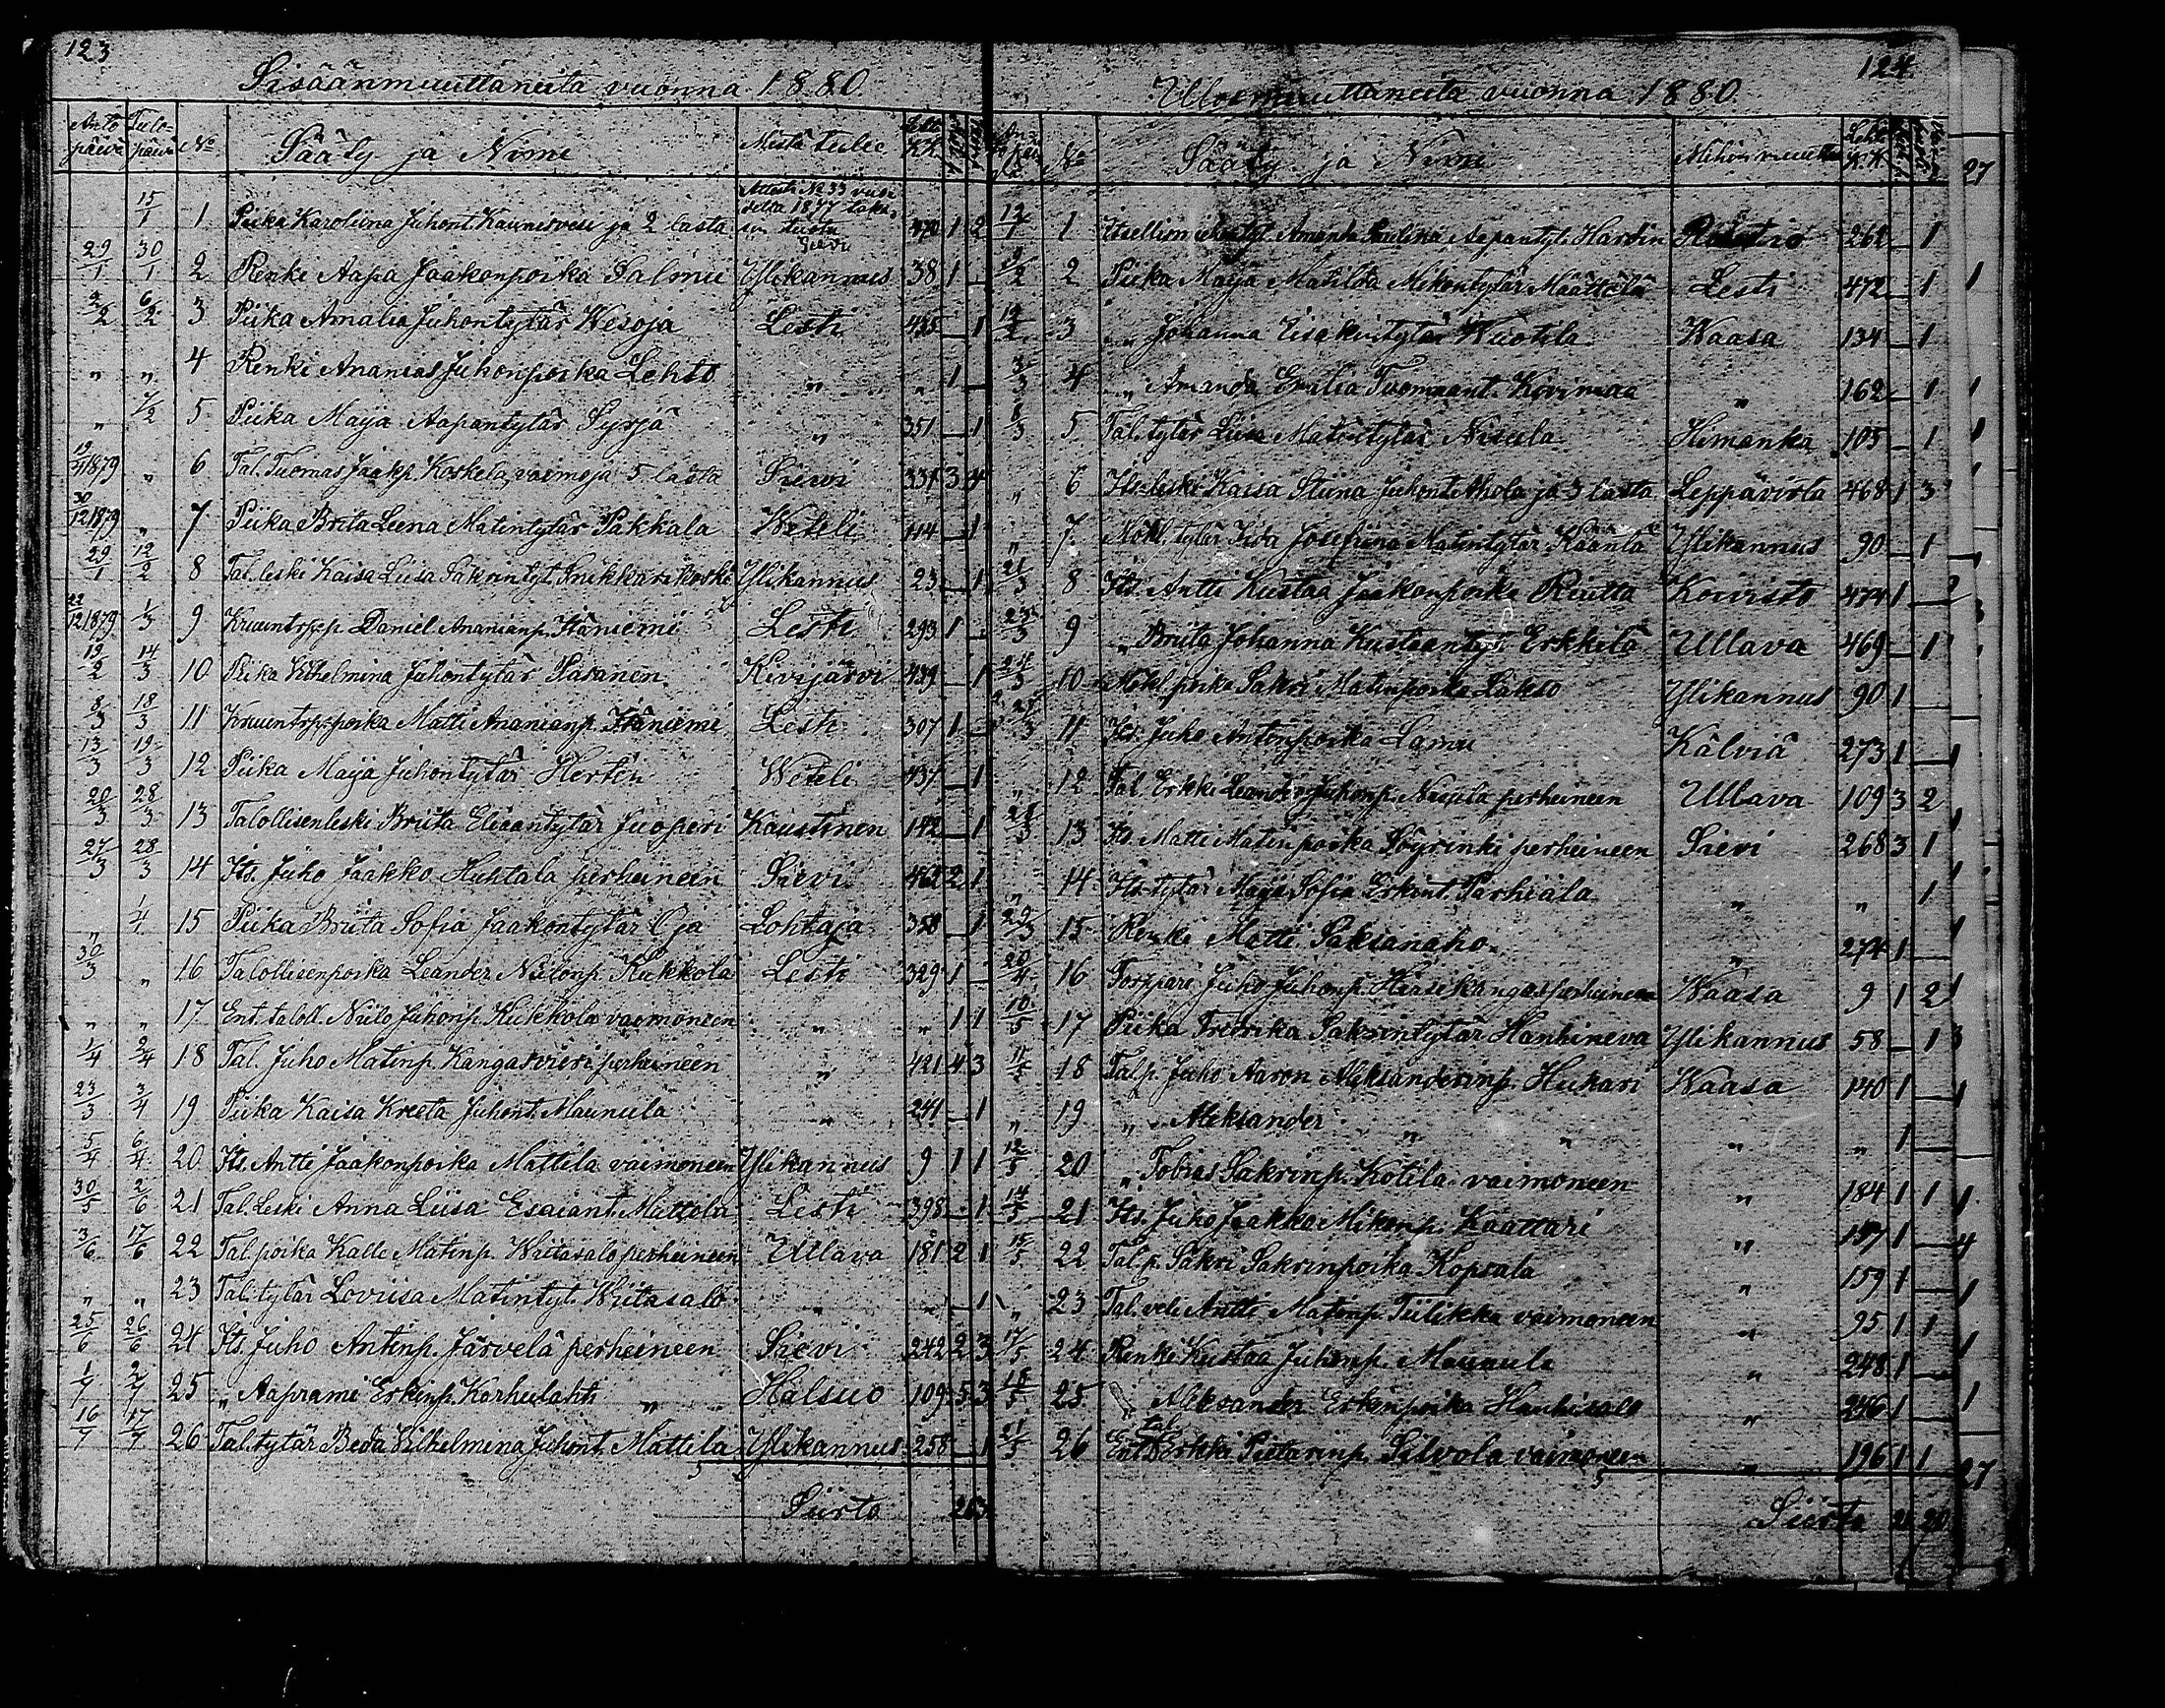 123
Sisäänmuuttaneita vuonna 1880.
Anto päivä Tulo-päivä No Sääty ja Nimi Mistä tulee
15/1 1 Piika Karoliina Juhont. Kaunisvesi ja 2 lasta Attesti No 33 vuodelta 1877 takasin tuotu Sievi 470 1 2
29/1 30/1 2 Renki Aapa Jaakonpoika Salmu Ylikannus 38 1 -
2/2 6/2 3 Piika Amalia Juhontytär Wesoja Lesti 435 - 1
" " 4 Renki Ananias Juhonpoika Lehto " " 1 -
" 7/2 5 Piika Maija Aapantytär Syrjä " 351 - 1
" 6 Tal. Tuomas Jaakp. Koskela, vaimo ja 5 lasta Sievi 331 3 4
30/12 1879 " 7 Piika Brita Leena Matintytär Pakkala Weteli 114 - 1
29/1 12/2 8 Tal. leski Kaisa Liisa Sakrintyt. Snikkarikoski Ylikannus 23 - 1
22/12 1879 1/3 9 Kruuntrpp. Daniel Ananianp. Itäniemi Lesti 293 1 -
19/2 14/3 10 Piika Wilhelmina Juhontytär Pasanen Kivijärvi 439 - 1
8/3 18/3 11 Kruuntrp. poika Matti Ananianp. Itäniemi Lesti 307 1 -
13/3 19/3 12 Piika Maija Juhontytär Herten Weteli 437 - 1
20/3 28/3 13 Talollisenleski Briita Eliaantytär Juoperi Kaustinen 142 - 1
27/3 28/3 14 Its. Juho Jaakko Huhtala perheineen Sievi 462 2 1
" 1/4 15 Piika Briita Sofia Jaakontytär Oja Lohtaja 358 - 1
30/3 " 16 Talollisenpoika Leander Niilonp. Kukkola Lesti 329 1 -
" " 17 Ent. taloll. Niilo Juhonp. Kukkola vaimoneen " " 1 1
1/4 2/4 18 Tal. Juho Matinp. Kangasvieri perheineen " 421 4 3
23/3 3/4 19 Piika Kaisa Kreeta Juhont. Maunula " 241 - 1
5/4 6/4 20 Its. Antti Jaakonpoika Mattila vaimoneen Ylikannus 9 1 1
30/5 2/6 21 Tal. Leski Anna Liisa Esaiant. Mattola Lesti 398 - 1
3/6 17/6 22 Tal. poika Kalle Matinp. Wiitasalo perheineen Ullava 181 2 1
" " 23 Tal. tytär Loviisa Matintyt. Wiitasalo " " - 1
25/6 26/6 24 Its. Juho Antinp. Järvelä perheineen Sievi 242 2 3
1/7 2/7 25 " Aaprami Erkinp. Korhulahti " Halsuo 109 5 3
16/7 17/7 26 Tal. tytär Beda Wilhelmina Juhont. Mattila Ylikannus 258 - 1
Siirto
124
Ulosmuuttaneita vuonna 1880.
No Sääty ja Nimi Mihin muuttaa
1 Amanda Paulina Aapantyt. Hardin 262 - 1
2 Piika Maija Matilda Mikontytär Määttälä Lesti 472 - 1
3 " Johanna Eisakintytär Wuotila Waasa 134 - 1
3/3 4 " Amanda Emalia Tuomaant. Kovimaa " 162 - 1
8/3 5 Tal. tytär Liisa Matintytär Niskala Himanka 105 - 1
" 6 Its. leski Kaisa Stiina Juhont. Ahola ja 3 lasta Leppävirta 468 1 3
" 7 Mökl. tytär Iida Josefiina Matintytär Kaanta Ylikannus 90 - 1
21/3 8 Its. Antti Kustaa Jaakonpoika Riutta Koivisto 474 1 -
23/3 9 " Briita Johanna Kustaantyt. Erkkilä Ullava 469 - 1
24/3 10 Mökl. poika Sakri Matinpoika Lakso Ylikannus 90 1
11 Its. Juho Antinpoika Lamu Kälviä 273 1 -
" 12 Tal. Erkki Leander Juhonp. perheineen Ullava 109 3 2
28/3 13 Its. Matti Matinpoika Söyrinki perheineen Sievi 268 3 1
" 14 Its. tytär Maija Sofia Erkint. Parhiala " " 1
29/3 15 Renki Matti Saksanaho " 274 1 -
20/4 16 Torppari Juho Juhonp. Haasikangas perheineen Waasa 9 1 2
10/5 17 Piika Fredrika Sakrintytär Hanhineva Ylikannus 58 - 1
11/5 18 Tal. p. Juho Aaron Aleksanderinp. Huhari Waasa 140 1 -
" 19 " Aleksander " " " " 1
12/5 20 " Tobias Sakrinp. Kotila vaimoneen " 184 1 1
14/5 21 Its. Juho Jaakko Mikonp. Kaattari " 197 1 -
15/5 22 Tal. p. Sakri Sakrinpoika Kopsala " 159 1 -
" 23 Tal. veli Antti Matinp. Tiilikka vaimoneen " 95 1 1
17/5 24 Renki Kustaa Juhonp. Maunula " 248 1 -
18/5 25 " Aleksander Erkinpoika Hanhisalo " 246 1
21/5 26 Ent. tal. Erkki Pietarinp. Silvola vaimoneen " 196 1 1
Siirto 21 20